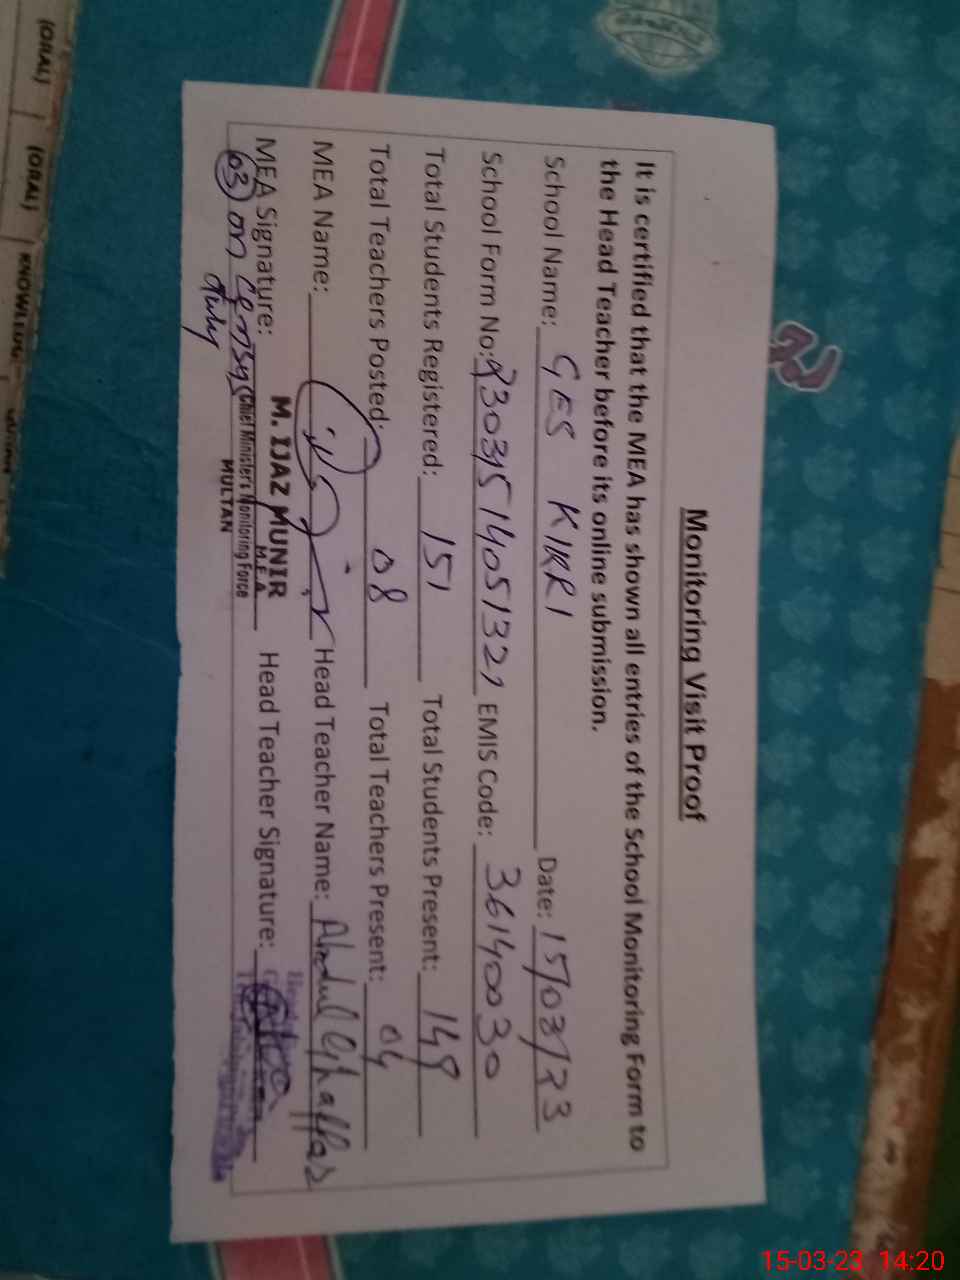 Monitoring Visit Proof
It is certified that the MEA has shown all entries of the School Monitoring Form to
the Head Teacher before its online submission.
School Name: GES KIRRI Date: 15/03/23
School Form No: EMIS Code: 36140030
Total Students Registered: 151 Total Students Present: 149
Total Teachers Posted: 08 Total Teachers Present: 04
MEA Name: Head Teacher Name: Abdul Ghaffar
MEA Signature: M. IJAZ MUNIR Head Teacher Signature:
M.E.A
Chief Minister's Monitoring Force
MULTAN
03 on census
duty
(ORAL)
(ORAL)
15-03-23 14:20